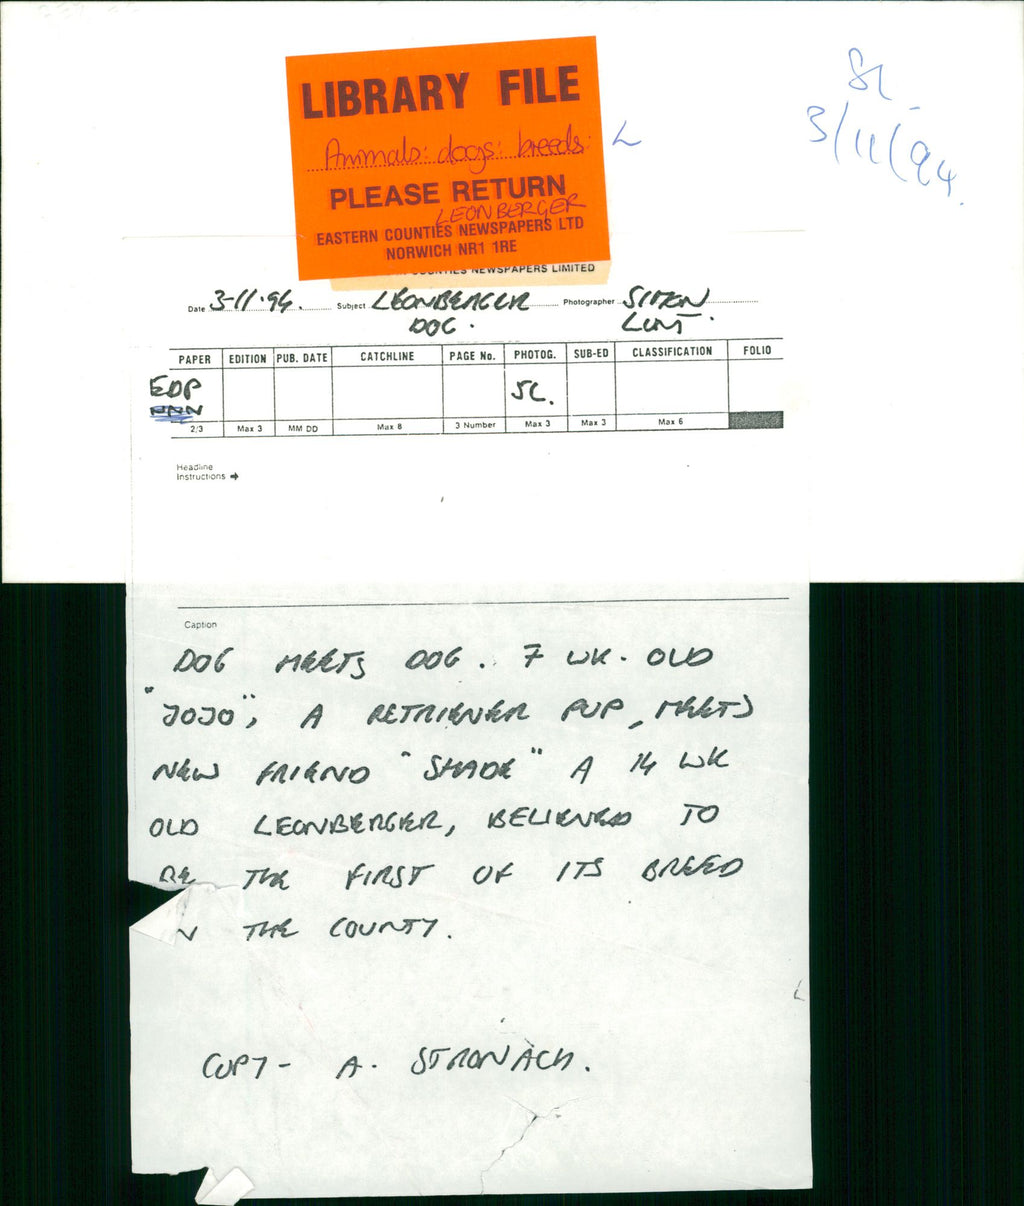 SL.
3/11/94.
LIBRARY FILE
Animals: dogs: breeds: L
PLEASE RETURN
LEONBERGER
EASTERN COUNTIES NEWSPAPERS LTD
NORWICH NR1 1RE
COUNTIES NEWSPAPERS LIMITED
Date 3-11-94. Subject LEONBERGER DOG. Photographer SIMON
PAPER EDITION PUB. DATE CATCHLINE PAGE No. PHOTOG. SUB-ED CLASSIFICATION FOLIO
EDP SL.
2/3 Max 3 MM DD Max 8 3 Number Max 3 Max 3 Max 6
Headline
Instructions →
Caption
DOG MEETS DOG. 7 WK. OLD
"JOJO", A RETRIEVER PUP, MEETS
NEW FRIEND "SHADE" A 14 WK
OLD LEONBERGER, BELIEVED TO
BE THE FIRST OF ITS BREED
N THE COUNTY.
COPY - A. STRONACH.